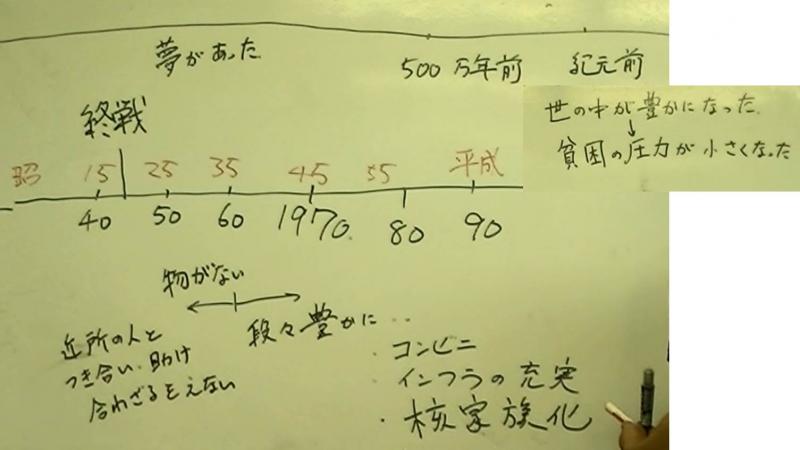 夢があった
500万年前 紀元前
世の中が豊かになった.
↓
貧困の圧力が小さくなった
終戦
昭 15 25 35 45 55 平成
40 50 60 1970. 80 90
物がない
段々豊かに...
近所の人と
つき合い.助け
合わざるをえない
・コンビニ
・インフラの充実
・核家族化